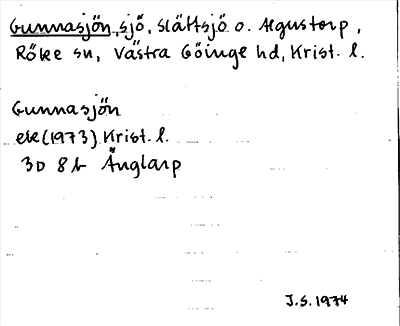 Gunnasjön, sjö, Slättsjö o. Algustorp,
Röke sn, Västra Göinge hd, Krist. l.
Gunnasjön
ek (1973) Krist. l.
3D 8b Änglarp
J.S. 1974